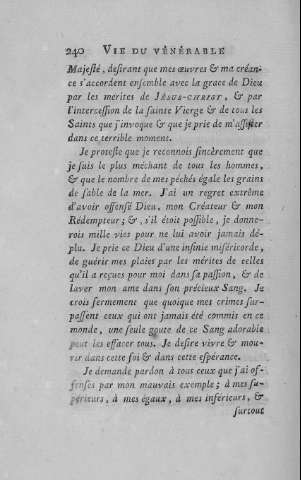 240 VIE DU VÉNÉRABLE
Majesté, desirant que mes œuvres & ma créan-
ce s'accordent ensemble avec la grace de Dieu
par les mérites de JÉSUS-CHRIST, & par
l'intercession de la sainte Vierge & de tous les
Saints que j'invoque & que je prie de m'assister
dans ce terrible moment.
Je proteste que je reconnois sincèrement que
je suis le plus méchant de tous les hommes,
& que le nombre de mes péchés égale les grains
de sable de la mer. J'ai un regret extrême
d'avoir offensé Dieu, mon Créateur & mon
Rédempteur; &, s'il étoit possible, je donne-
rois mille vies pour ne lui avoir jamais dé-
plu. Je prie ce Dieu d'une infinie miséricorde,
de guérir mes plaies par les mérites de celles
qu'il a reçues pour moi dans sa passion, & de
laver mon ame dans son précieux Sang. Je
crois fermement que quoique mes crimes sur-
passent ceux qui ont jamais été commis en ce
monde, une seule goute de ce Sang adorable
peut les effacer tous. Je desire vivre & mou-
rir dans cette foi & dans cette espérance.
Je demande pardon à tous ceux que j'ai of-
fensés par mon mauvais exemple; à mes su-
périeurs, à mes égaux, à mes inférieurs, &
surtout